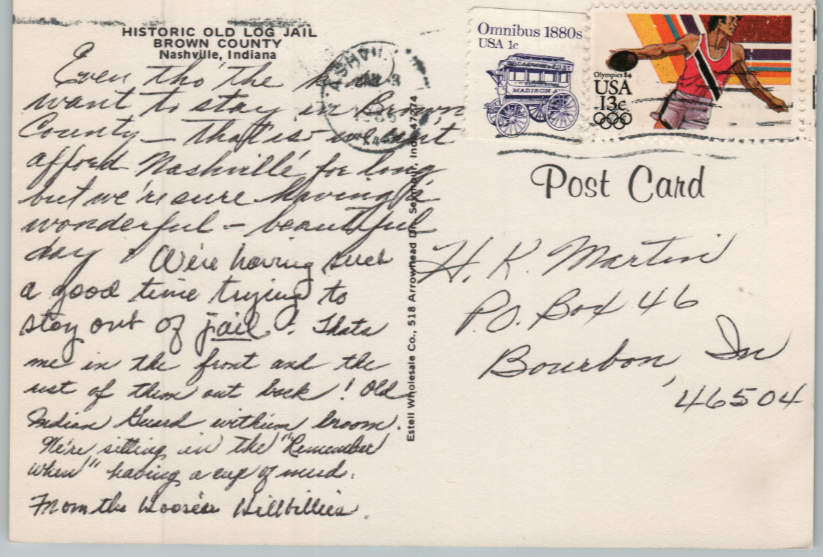 HISTORIC OLD LOG JAIL
BROWN COUNTY
Nashville, Indiana
Even tho' the
want to stay in Brown
County - that is we can't
afford Nashville for long
but we're sure having a
wonderful - beautiful
day! We're having such
a good time trying to
stay out of jail! Thats
me in the front and the
rest of them out back! Old
Indian Guard with broom.
We're sitting in the "Remember
When" having a cup of mud.
From the Hoosier Hillbillies.
Estell Wholesale Co., 518 Arrowhead Dr., Seymour, Ind. 47274
Omnibus 1880s
USA 1c
MADISON AV
Olympics 84
USA
13c
Post Card
H. K. Martin
P.O. Box 46
Bourbon, In
46504